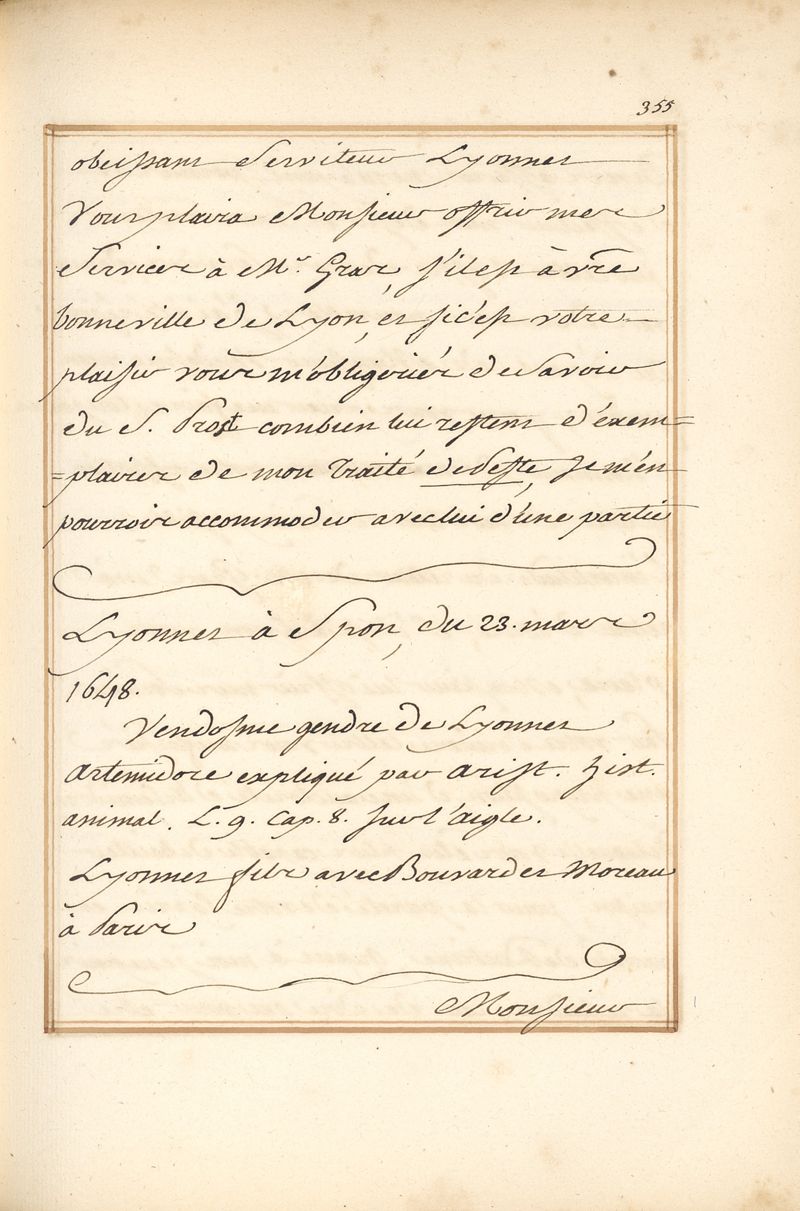 355
obeissant Serviteur Lyonnet
Vous plaira Monsieur offrir mes
Services à Mr. Gras, s'il est à vr̃e
bonne ville de Lyon, et si c'est votre
plaisir vous m'obligeriés de Savoir
du S. Prost combien lui restent d'éxem=
=plaires de mon traité de Peste, Je m'en
pourrois accommoder avec lui d'une partie
Lyonnet à Spon, du 23. mars
1648.
Vendosme gendre de Lyonnet
Artemidore expliqué par Arist. hist.
animal. L. 9. Cap. 8. sur l'aigle.
Lyonnet fils avec Bouvard et Moreau
à Paris
Monsieur